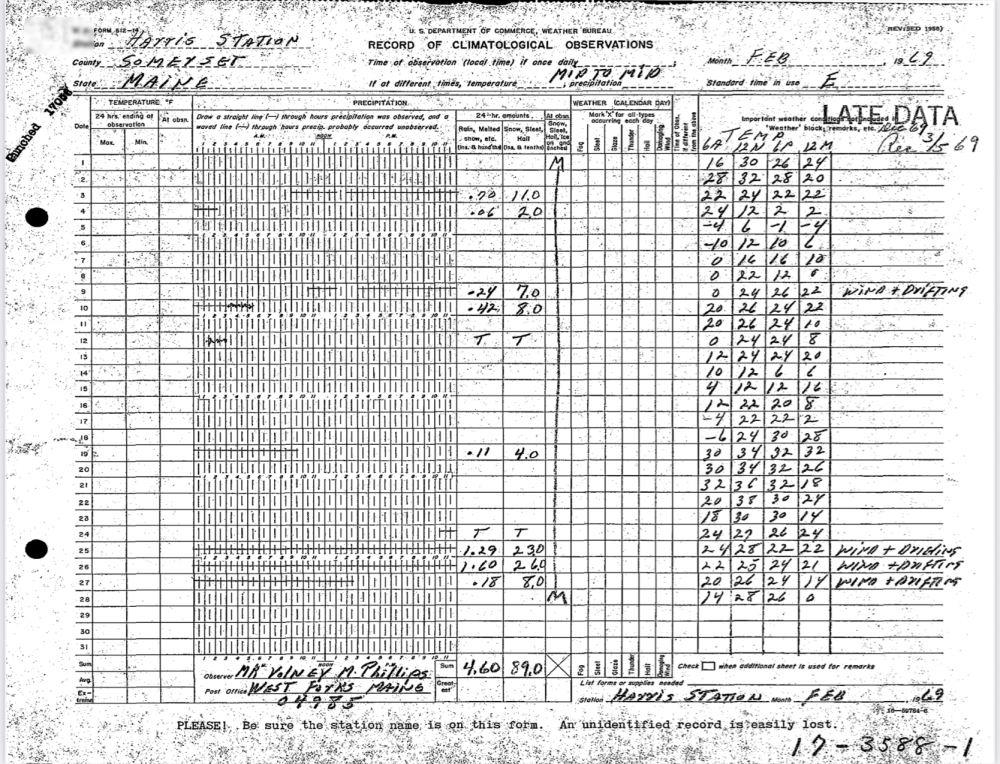 FORM 612-
U. S. DEPARTMENT OF COMMERCE, WEATHER BUREAU
(REVISED 1956)
Station HARRIS STATION
RECORD OF CLIMATOLOGICAL OBSERVATIONS
County SOMERSET
Time of observation (local time) if once daily
Month FEB 1969
MID TO MID
State MAINE
If at different times, temperature , precipitation
Standard time in use E
Punched
TEMPERATURE °F PRECIPITATION WEATHER (CALENDAR DAY)
Date 24 hrs. ending at observation Max. Min. At obsn.
Draw a straight line (—) through hours precipitation was observed, and a
waved line (~) through hours precip. probably occurred unobserved.
A.M. NOON P.M.
24-hr. amounts At obsn.
Rain, Melted snow, etc. (Ins. & hundths) Snow, Sleet, Hail (Ins. & tenths) Snow, Sleet, Hail, Ice on ground
Mark "X" for all types occurring each day
Fog Sleet Glaze Thunder Hail Damaging Wind
Important weather
"Weather" block, remarks, etc.
LATE DATA
Rec 3/5 69
TEMP
6A 12N 6P 12M
1 M 16 30 26 24
2 28 32 28 20
3 .70 11.0 22 24 22 22
4 .06 2.0 24 12 2 2
5 -4 6 -1 -4
6 -10 12 10 6
7 0 16 16 10
8 0 22 12 0
9 .24 7.0 0 24 26 22 WIND + DRIFTING
10 .42 8.0 20 26 24 22
11 20 26 24 10
12 T T 0 24 24 8
13 12 24 24 20
14 10 12 6 6
15 4 12 12 16
16 12 22 20 8
17 -4 22 22 2
18 -6 24 30 28
19 .11 4.0 30 34 32 32
20 30 34 32 26
21 32 36 32 18
22 20 38 30 24
23 18 30 30 14
24 T T 24 27 26 24
25 1.29 23.0 24 28 22 22 WIND + DRIFTING
26 1.60 26.0 22 25 24 21 WIND + DRIFTING
27 .18 8.0 20 26 24 14 WIND + DRIFTING
28 M 14 28 26 0
29
30
31
Sum Sum 4.60 89.0 Fog Sleet Glaze Thunder Hail Damaging Wind
Check when additional sheet is used for remarks
Observer MR VOLNEY M. Phillips
Avg.
Post Office WEST FORKS MAINE
04985
List forms or supplies needed
Station HARRIS STATION Month FEB 1969
PLEASE! Be sure the station name is on this form. An unidentified record is easily lost.
17-3588-1